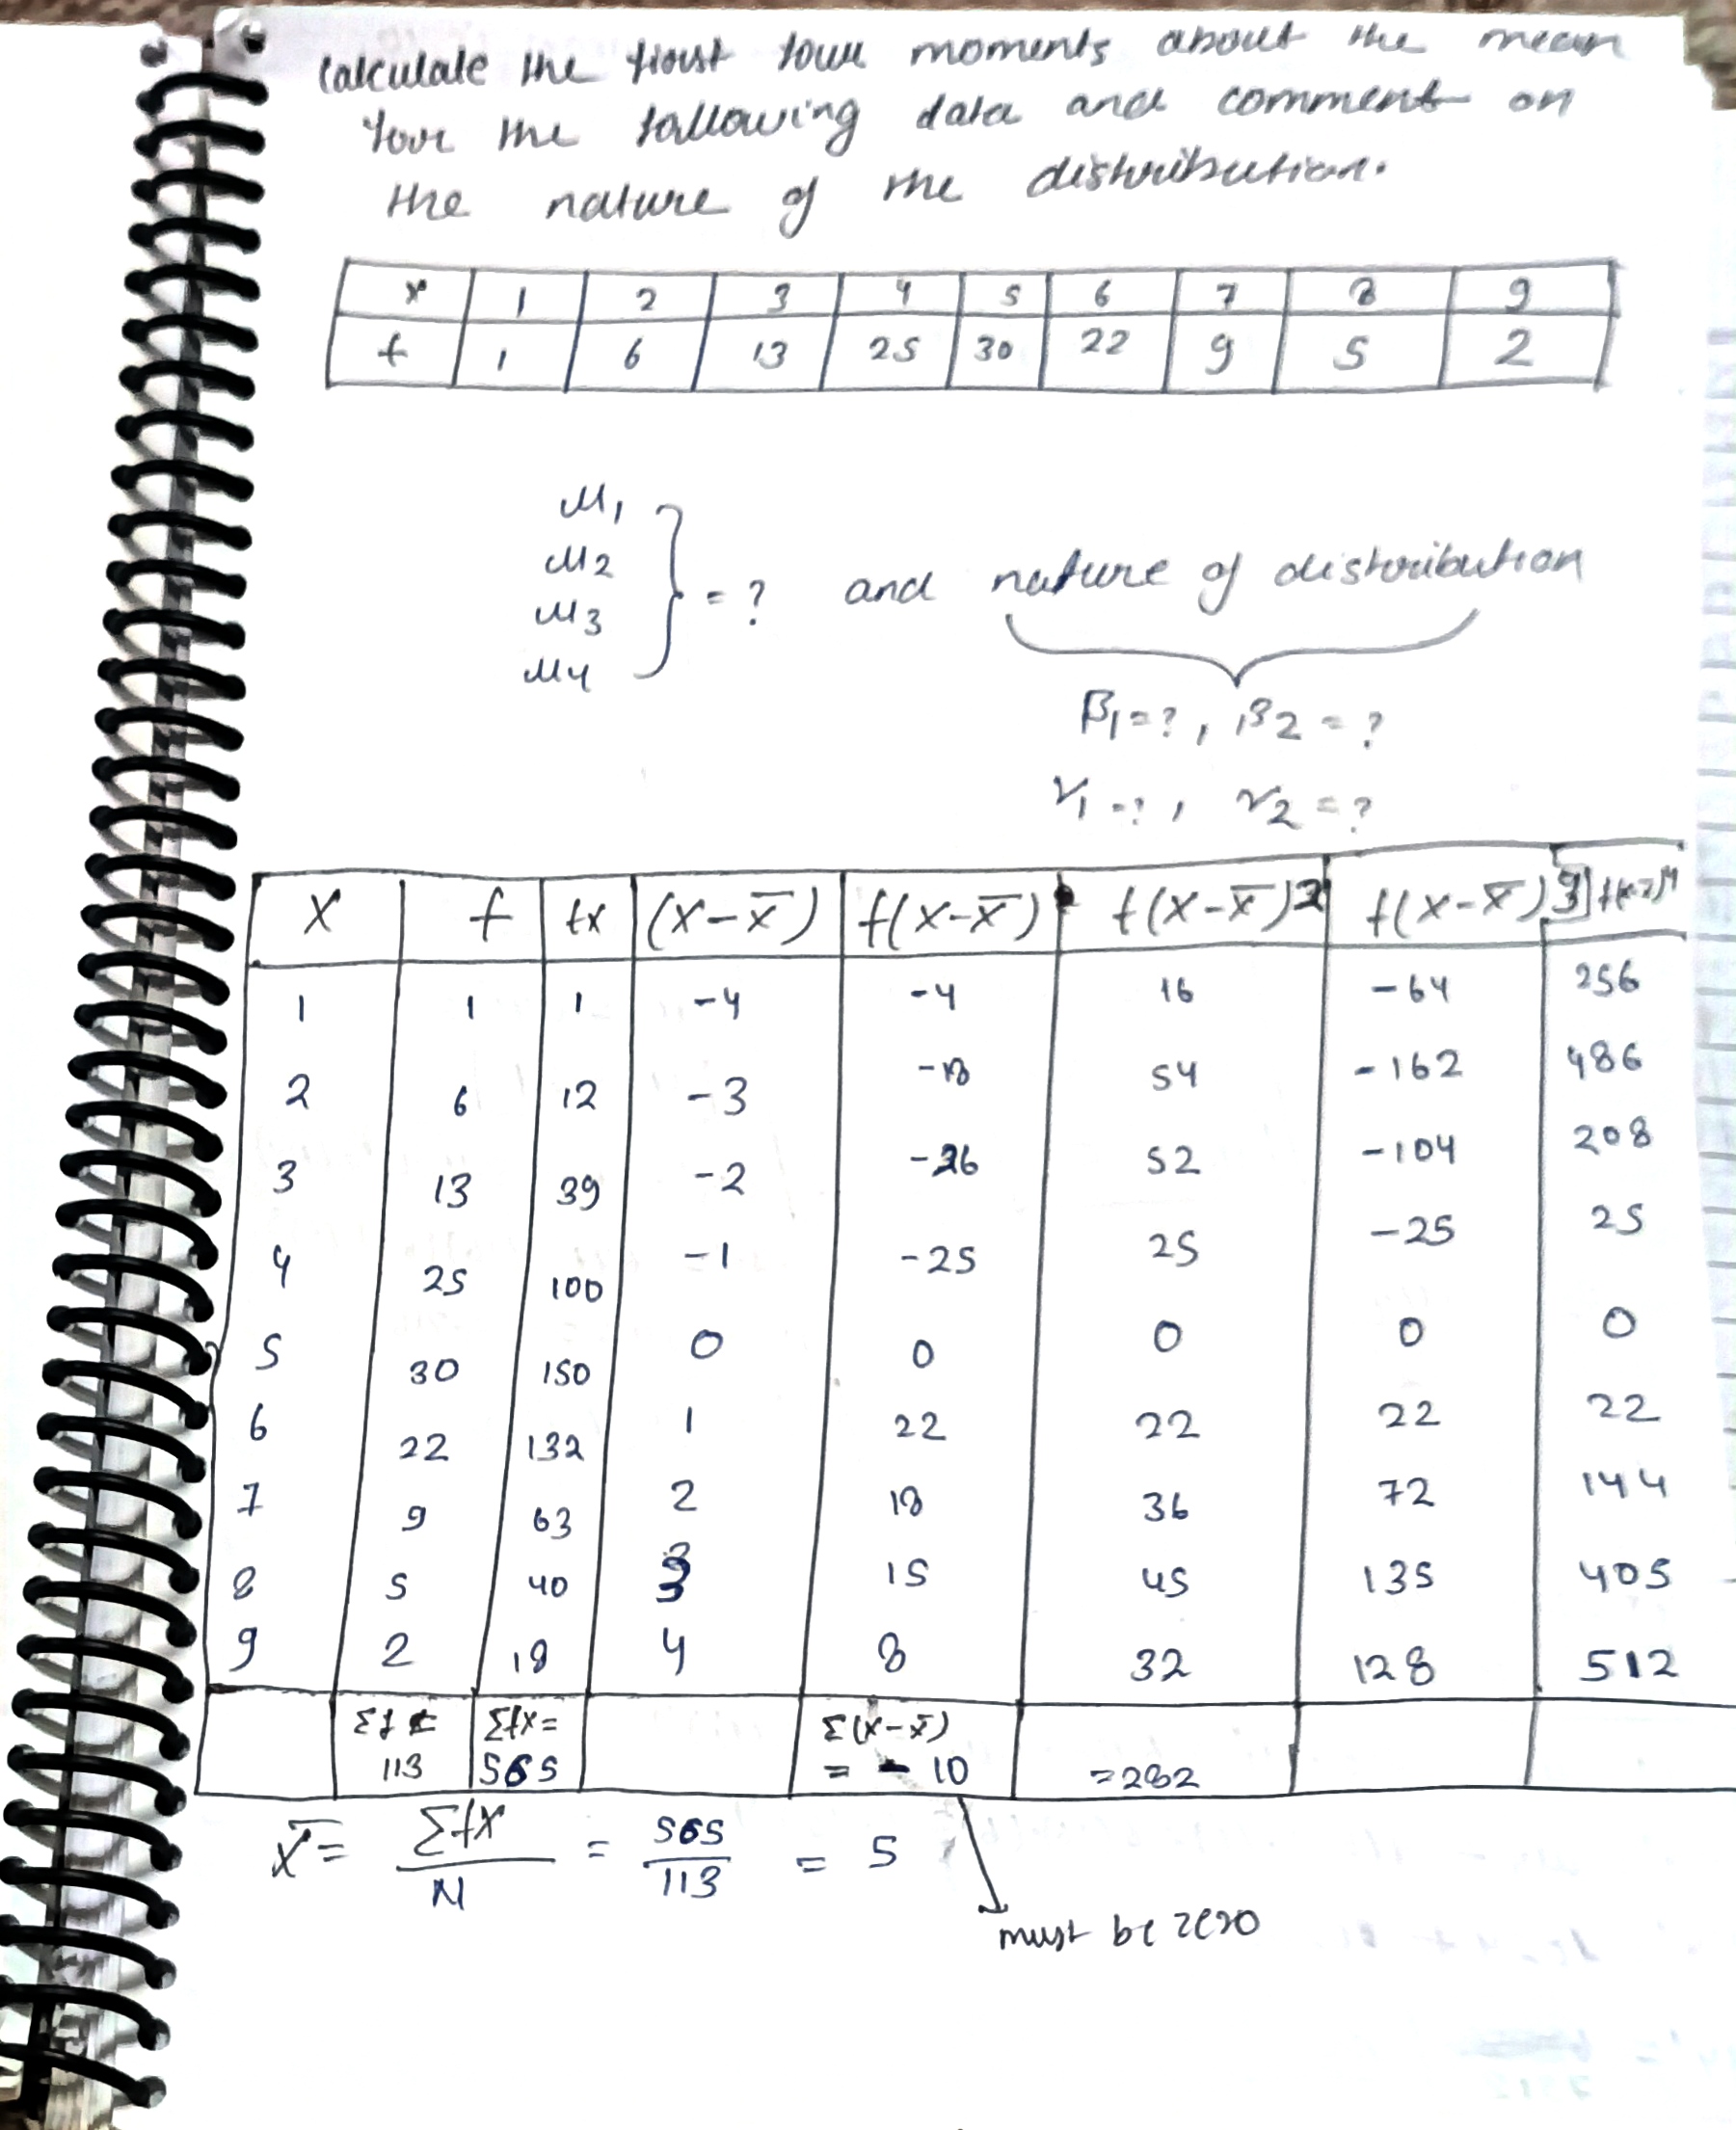 Calculate the first four moments about the mean
for the following data and comment on
the nature of the distribution.
x 1 2 3 4 5 6 7 8 9
f 1 6 13 25 30 22 9 5 2
μ1
μ2
μ3
μ4
} = ? and nature of distribution
β1 = ?, β2 = ?
γ1 = ?, γ2 = ?
X f fx (X-X̄) f(X-X̄) f(X-X̄)2 f(X-X̄)3 f(x-x̄)4
1 1 1 -4 -4 16 -64 256
2 6 12 -3 -18 54 -162 486
3 13 39 -2 -26 52 -104 208
4 25 100 -1 -25 25 -25 25
5 30 150 0 0 0 0 0
6 22 132 1 22 22 22 22
7 9 63 2 18 36 72 144
8 5 40 3 15 45 135 405
9 2 18 4 8 32 128 512
Σf = Σfx = Σ(X-X̄)
113 565 = -10 =282
X̄ = ΣfX / N = 565 / 113 = 5
must be zero